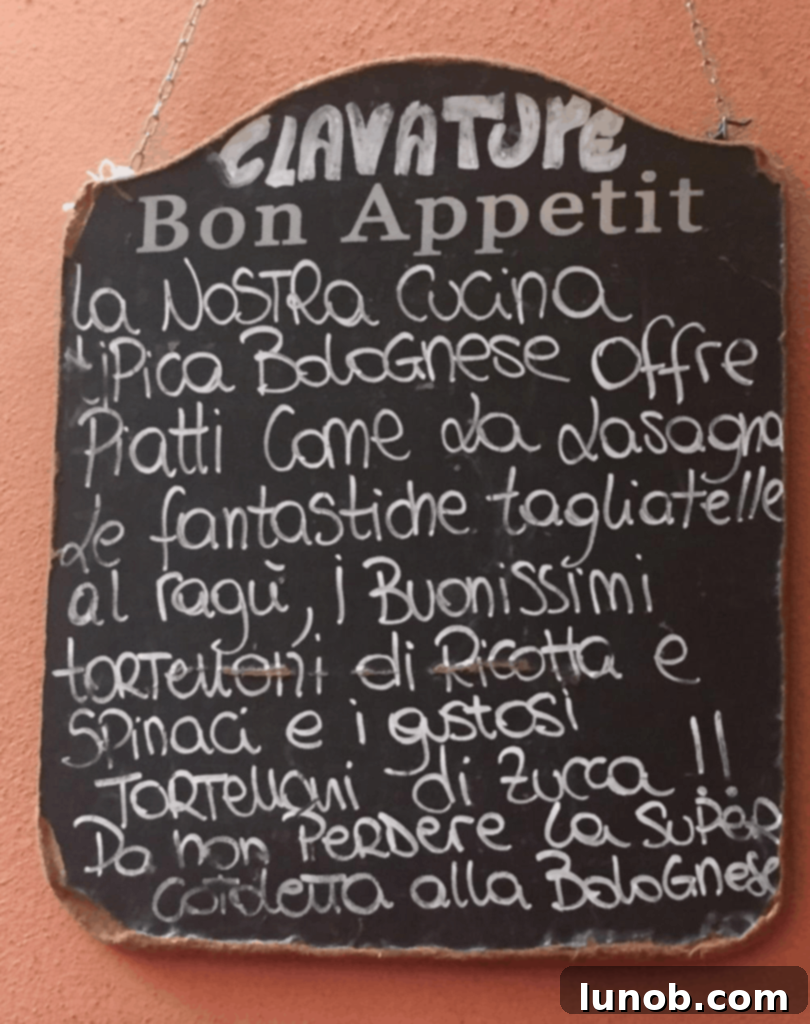 CLAVATURE
Bon Appetit
La NOSTRa Cucina
tipica BoloGnese offre
Piatti Come La Lasagna
Le fantastiche tagliatelle
al ragù, i Buonissimi
TORTelloni di Ricotta e
SPinaci e i gustosi
TORTelloni di Zucca !!
Da non PerDere la SUPER
cotoletta alla BoloGnese
lunob.com